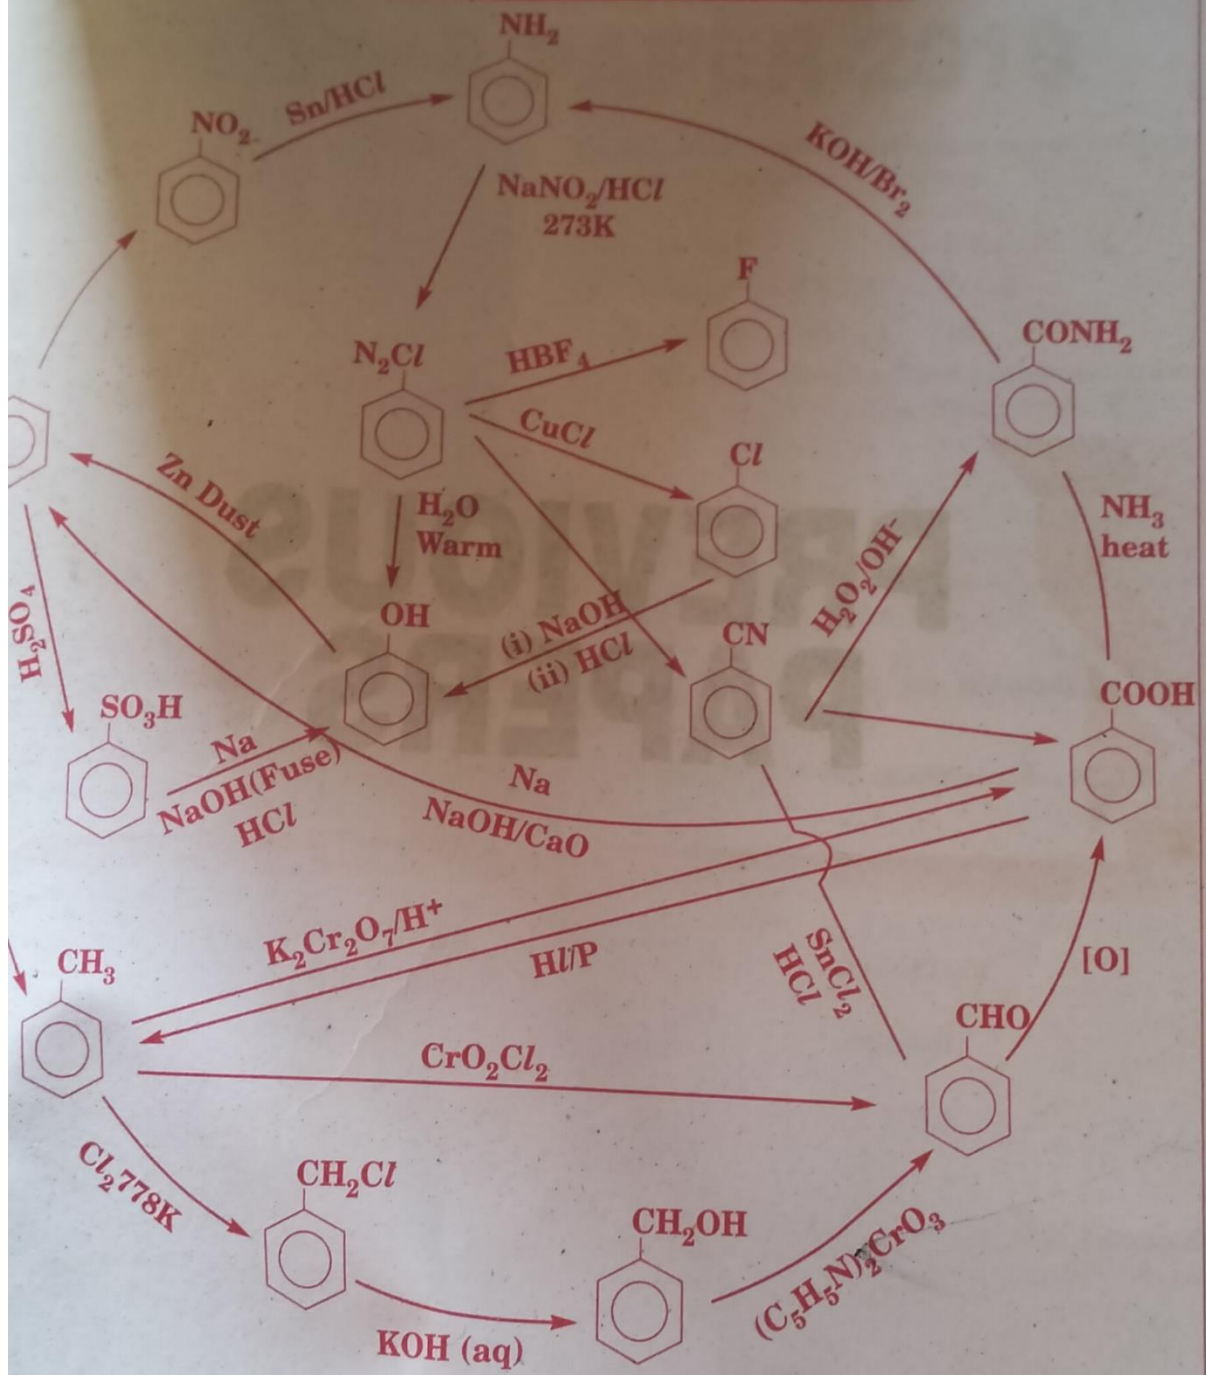 NH₂
NO₂
Sn/HCl
KOH/Br₂
NaNO₂/HCl
273K
F
N₂Cl
HBF₄
CONH₂
CuCl
Cl
Zn Dust
H₂O
Warm
NH₃
heat
H₂O₂/OH⁻
H₂SO₄
OH
(i) NaOH
(ii) HCl
CN
COOH
SO₃H
Na
NaOH(Fuse)
HCl
Na
NaOH/CaO
K₂Cr₂O₇/H⁺
HI/P
SnCl₂
HCl
[O]
CH₃
CHO
CrO₂Cl₂
Cl₂778K
CH₂Cl
CH₂OH
(C₅H₅N)₂CrO₃
KOH (aq)
PREVIOUS
PAPERS